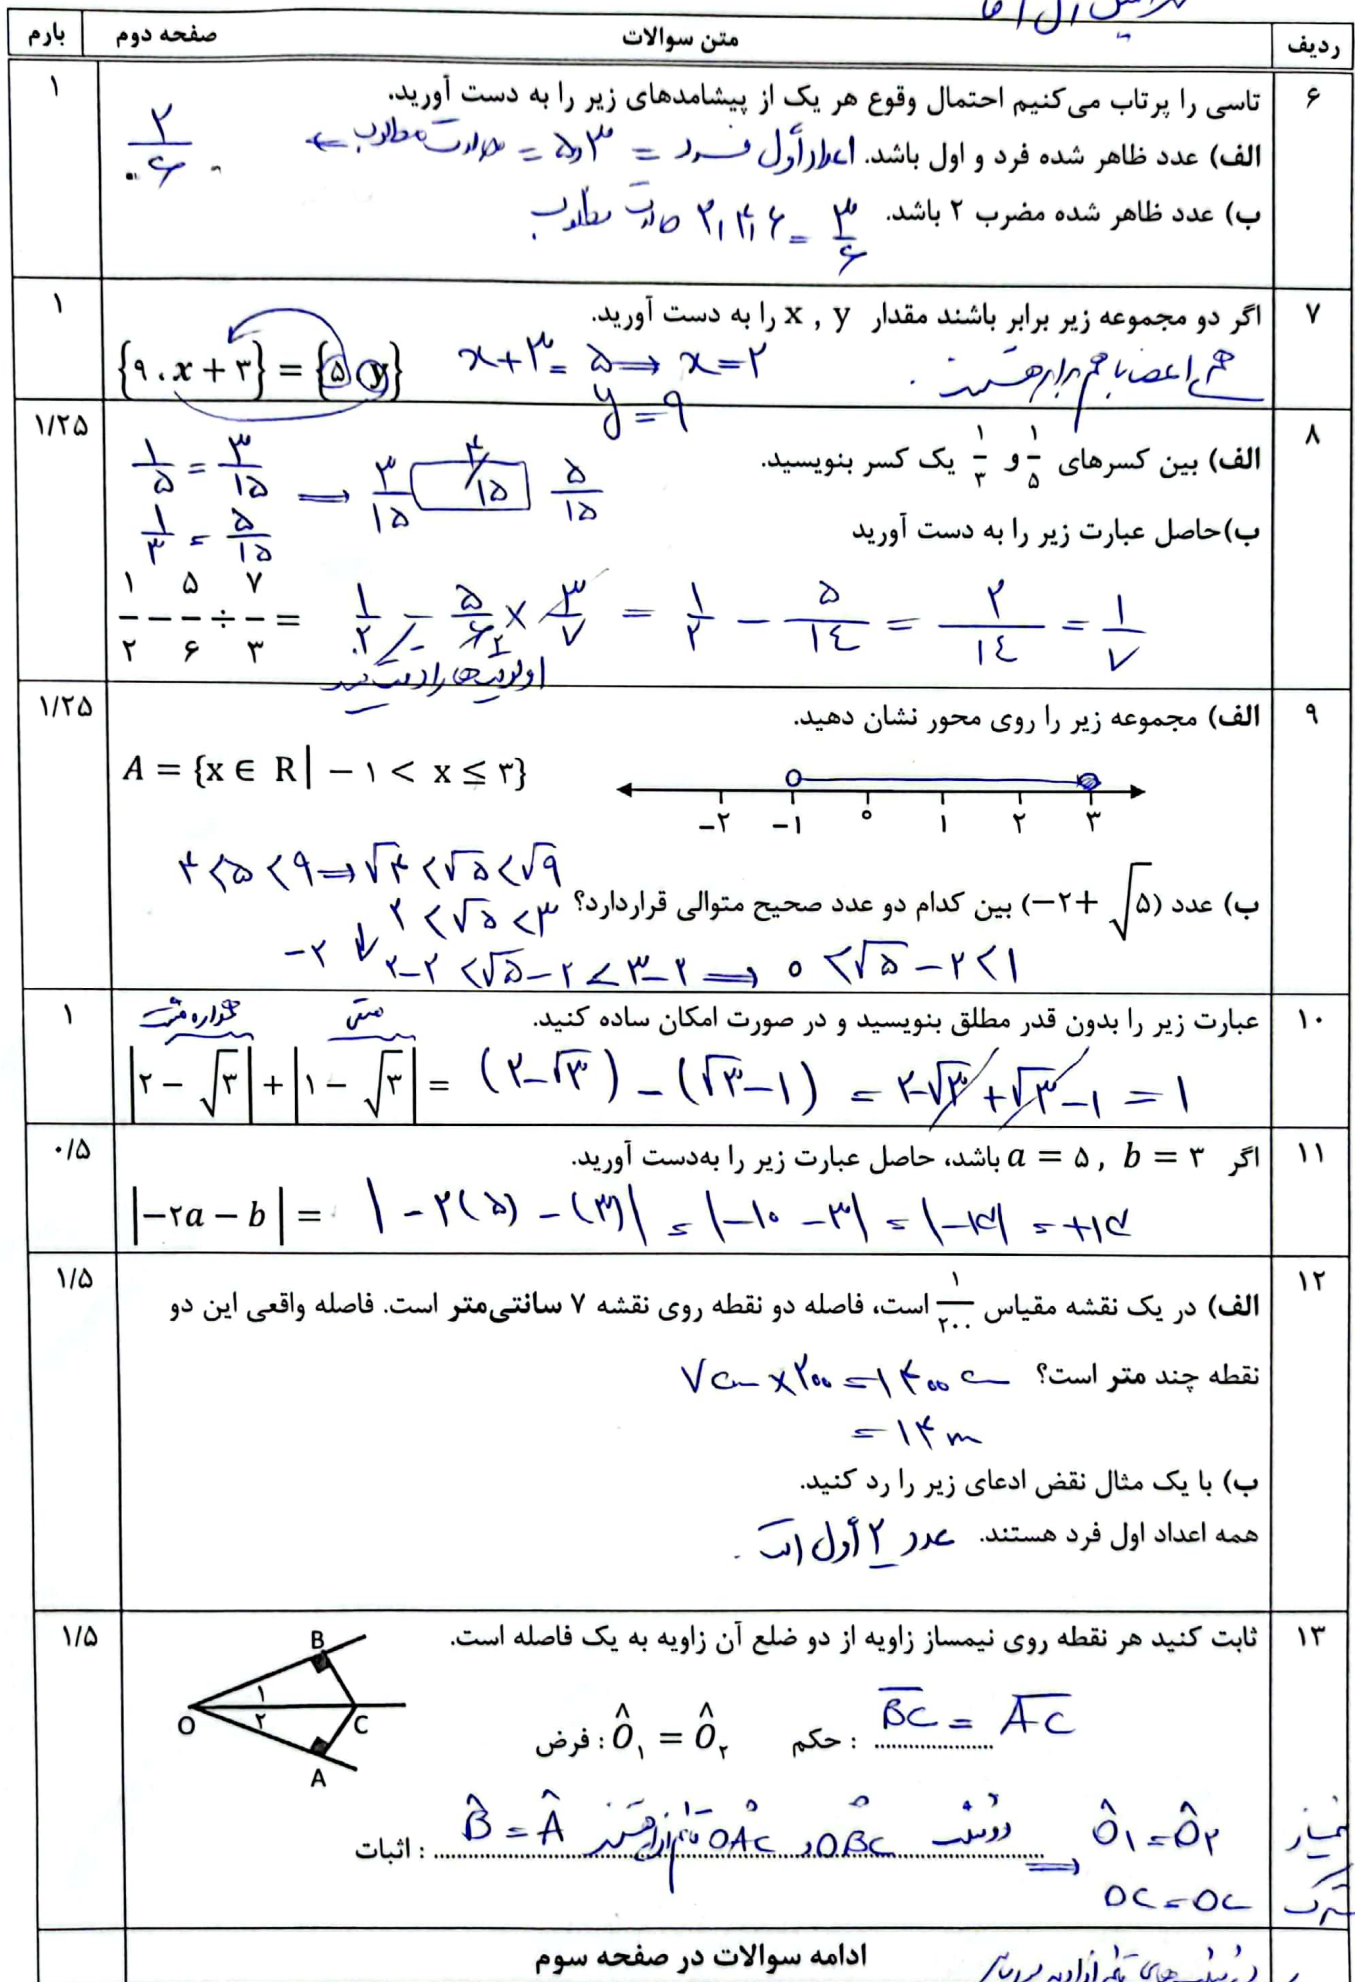 ردیف متن سوالات صفحه دوم بارم
۶ تاسی را پرتاب می‌کنیم احتمال وقوع هر یک از پیشامدهای زیر را به دست آورید. ۱
الف) عدد ظاهر شده فرد و اول باشد. اعداد اول فرد = ۳ و ۵ = حالت مطلوب ← ۲/۶
ب) عدد ظاهر شده مضرب ۲ باشد. ۲, ۴, ۶ حالت مطلوب = ۳/۶
۷ اگر دو مجموعه زیر برابر باشند مقدار x , y را به دست آورید. ۱
{۹ . x + ۳} = {۵ . y} x+۳=۵ ⟹ x=۲
y=۹
اعضا با هم برابر هستند.
۸ الف) بین کسرهای ۱/۵ و ۱/۳ یک کسر بنویسید. ۱/۲۵
۱/۵ = ۳/۱۵
۱/۳ = ۵/۱۵ ⟹ ۳/۱۵ ۴/۱۵ ۵/۱۵
ب)حاصل عبارت زیر را به دست آورید
۱/۲ − ۵/۶ ÷ ۷/۳ = ۱/۲ − ۵/۶ × ۳/۷ = ۱/۲ − ۵/۱۴ = ۲/۱۴ = ۱/۷
اولویت‌ها را دقت کنید
۹ الف) مجموعه زیر را روی محور نشان دهید. ۱/۲۵
A = {x ∈ R | − ۱ < x ≤ ۳}
−۲ −۱ ۰ ۱ ۲ ۳
۴<۵<۹ ⟹ √۴<√۵<√۹
ب) عدد (√۵ +۲−) بین کدام دو عدد صحیح متوالی قراردارد؟ ۲<√۵<۳
−۲ ↓ ۲−۲<√۵−۲<۳−۲ ⟹ ۰<√۵−۲<۱
۱۰ عبارت زیر را بدون قدر مطلق بنویسید و در صورت امکان ساده کنید. ۱
همواره مثبت منفی
|۲ − √۳| + |۱ − √۳| = (۲−√۳) − (√۳−۱) = ۲−√۳+√۳−۱ = ۱
۱۱ اگر a = ۵ , b = ۳ باشد، حاصل عبارت زیر را به‌دست آورید. ۰/۵
|−۲a − b| = |−۲(۵) − (۳)| = |−۱۰ −۳| = |−۱۳| = +۱۳
۱۲ الف) در یک نقشه مقیاس ۱/۲۰۰ است، فاصله دو نقطه روی نقشه ۷ سانتی‌متر است. فاصله واقعی این دو ۱/۵
نقطه چند متر است؟ ۷cm × ۲۰۰ = ۱۴۰۰ cm
= ۱۴ m
ب) با یک مثال نقض ادعای زیر را رد کنید.
همه اعداد اول فرد هستند. عدد ۲ اول است.
۱۳ ثابت کنید هر نقطه روی نیمساز زاویه از دو ضلع آن زاویه به یک فاصله است. ۱/۵
O ۱ ۲ B C A
فرض : Ô۱ = Ô۲ حکم : BC = AC
اثبات : B̂ = Â
Ô۱ = Ô۲ نیمساز ⟹ دو مثلث OBC و OAC قائم الزاویه هستند
OC = OC مشترک
ادامه سوالات در صفحه سوم